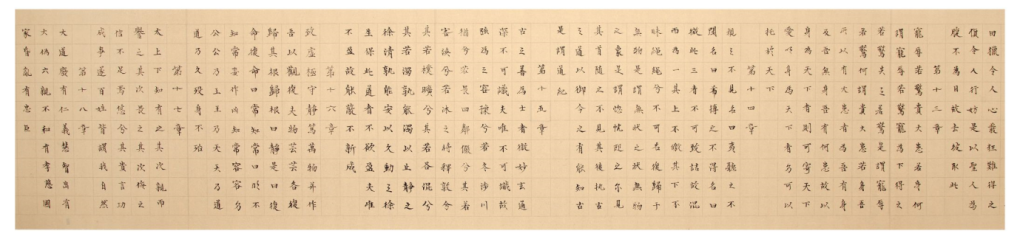 田獵令人心發狂難得之
貨令人行妨是以聖人為
腹不為目故去彼取此
第十三章
寵辱若驚貴大患若身何
謂寵辱若驚寵為下得之
若驚失之若驚是謂寵辱
若驚何謂貴大患若身吾
所以有大患者為吾有身
及吾無身吾有何患故以
身為天下則可寄
愛以身為天下者乃可以
托於天下
第十四章
視之不見名曰夷聽之不
聞名曰希搏之不得名曰
微此三者不可致詰故混
而為一其上不皦其下不
昧繩繩兮不可名復歸于
無物是謂無狀之狀無物
之象是謂惚恍迎之不見
其首隨之不見其後執古
之道以御今之有能知古
是謂道紀
第十五章
古之善為士者微妙玄通
深不可識夫唯不可識故
強為之容豫兮若冬涉川
猶兮若畏四鄰儼兮其若
客渙兮若冰之時釋敦兮
其若樸曠兮其若谷混兮
其若濁孰能濁以止靜之
徐清孰能安以久動之徐
生保此道者不欲盈夫唯
不盈故能蔽不新成
第十六章
致虛極守靜篤萬物并作
吾以觀復夫物芸芸各復
歸其根歸根曰靜是曰復
命復命曰常知常曰明不
知常妄作凶知常容容乃
公公乃王王乃天天乃道
道乃久歿身不殆
第十七章
太上下知有之其次親而
譽之其次畏之其次侮之
信不足焉悠兮其貴言功
成事遂百姓皆謂我自然
第十八章
大道廢有仁義慧智出有
大偽六親不和有孝慈國
家昏亂有忠臣